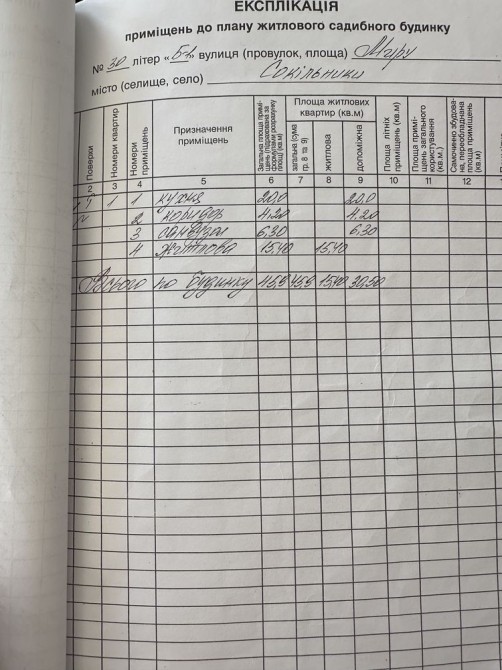 ЕКСПЛІКАЦІЯ
приміщень до плану житлового садибного будинку
№ 30 літер «Б-1» вулиця (провулок, площа) Миру
місто (селище, село) Сокільники
Поверхи
Номери квартир
Номери приміщень
Призначення приміщень
Загальна площа приміщень (підрахована за формулами розрахунку площ) (кв.м)
Площа житлових квартир (кв.м)
загальна (сума гр. 8 та 9)
житлова
допоміжна
Площа літніх приміщень (кв.м)
Площа приміщень загального користування (кв.м.)
Самочинно збудована, переобладнана площа приміщень (кв.м)
2 3 4 5 6 7 8 9 10 11 12
1 1 кухня 20,0 20,0
2 коридор 4,20 4,20
3 санвузол 6,30 6,30
4 житлова 15,40 15,40
Всього по будинку 45,9 45,9 15,40 30,50